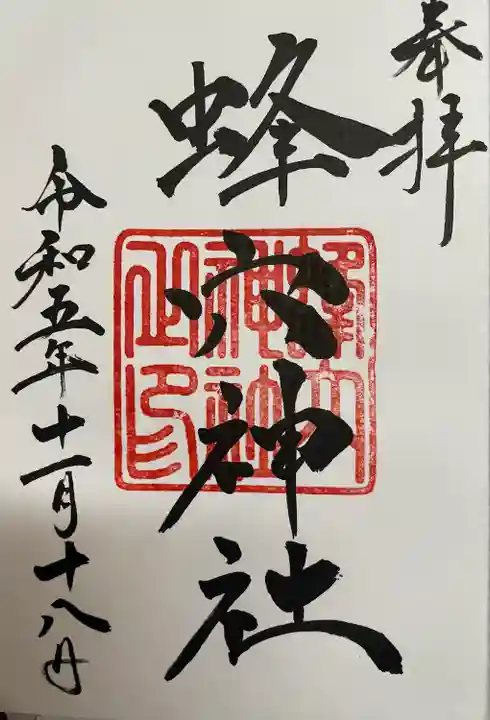 奉拝
蜂穴神社
蜂穴
神社
之印
令和五年十一月十八日